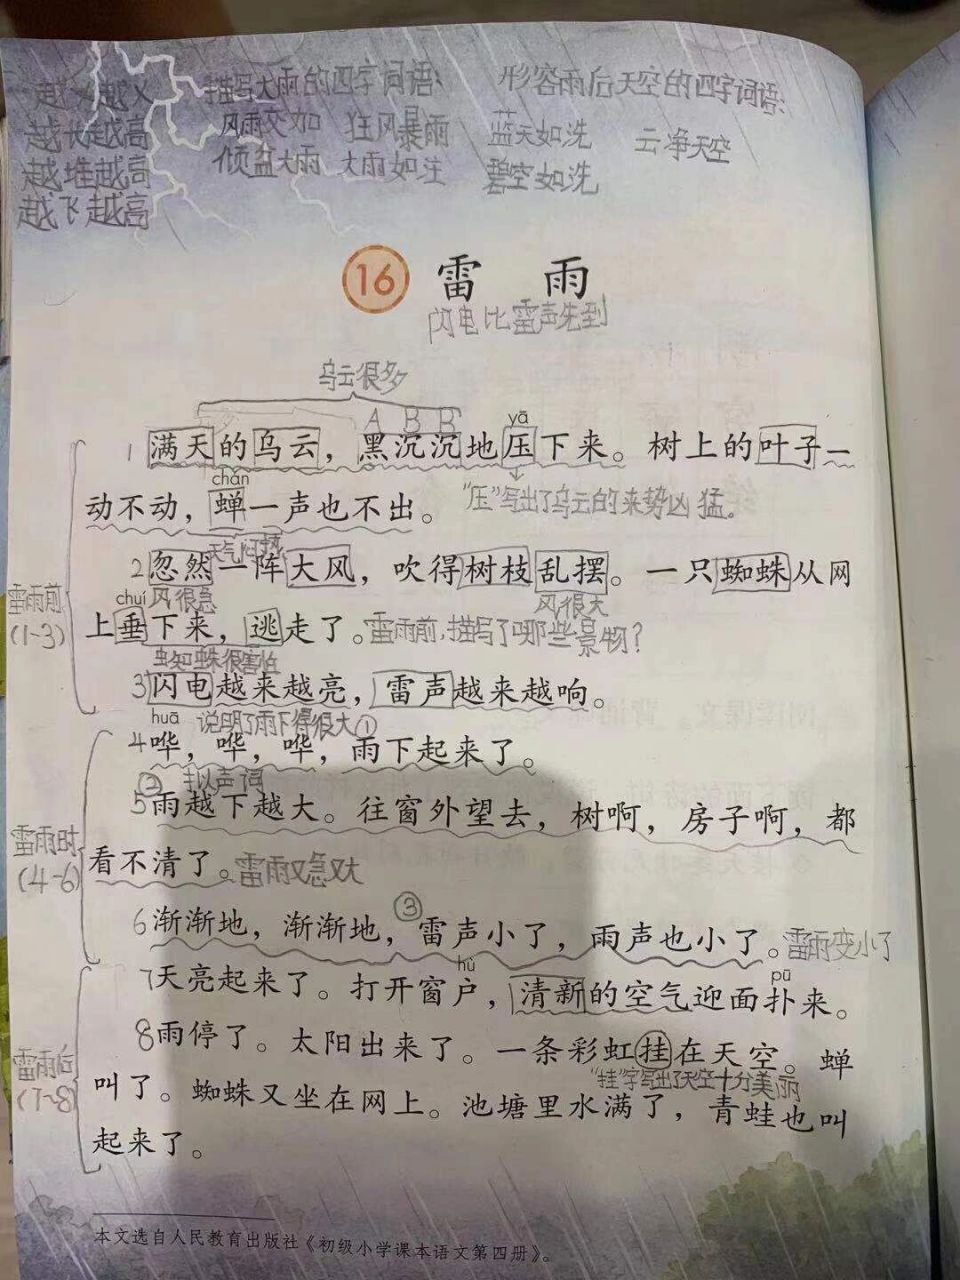 越又越又
越长越高
越堆越高
越飞越高
描写大雨的四字词语:
风雨交加 狂风暴雨
倾盆大雨 大雨如注
形容雨后天空的四字词语:
蓝天如洗 云净天空
碧空如洗
16 雷雨
闪电比雷声先到
乌云很多
A B B
yā
1 满天的乌云，黑沉沉地压下来。树上的叶子一
chán
动不动，蝉一声也不出。
"压"写出了乌云的来势凶猛。
天气闷热
2 忽然一阵大风，吹得树枝乱摆。一只蜘蛛从网
chuí 风很急 风很大
上垂下来，逃走了。雷雨前,描写了哪些景物?
雷雨前
(1-3)
蜘蛛很害怕
3 闪电越来越亮，雷声越来越响。
huā 说明了雨下得很大①
4 哗，哗，哗，雨下起来了。
② 拟声词
5 雨越下越大。往窗外望去，树啊，房子啊，都
雷雨时
(4-6)
看不清了。雷雨又急又大
③
6 渐渐地，渐渐地，雷声小了，雨声也小了。雷雨变小了
hù pū
7 天亮起来了。打开窗户，清新的空气迎面扑来。
8 雨停了。太阳出来了。一条彩虹挂在天空。蝉
雷雨后
(7-8)
"挂"字写出了天空十分美丽
叫了。蜘蛛又坐在网上。池塘里水满了，青蛙也叫
起来了。
本文选自人民教育出版社《初级小学课本语文第四册》。